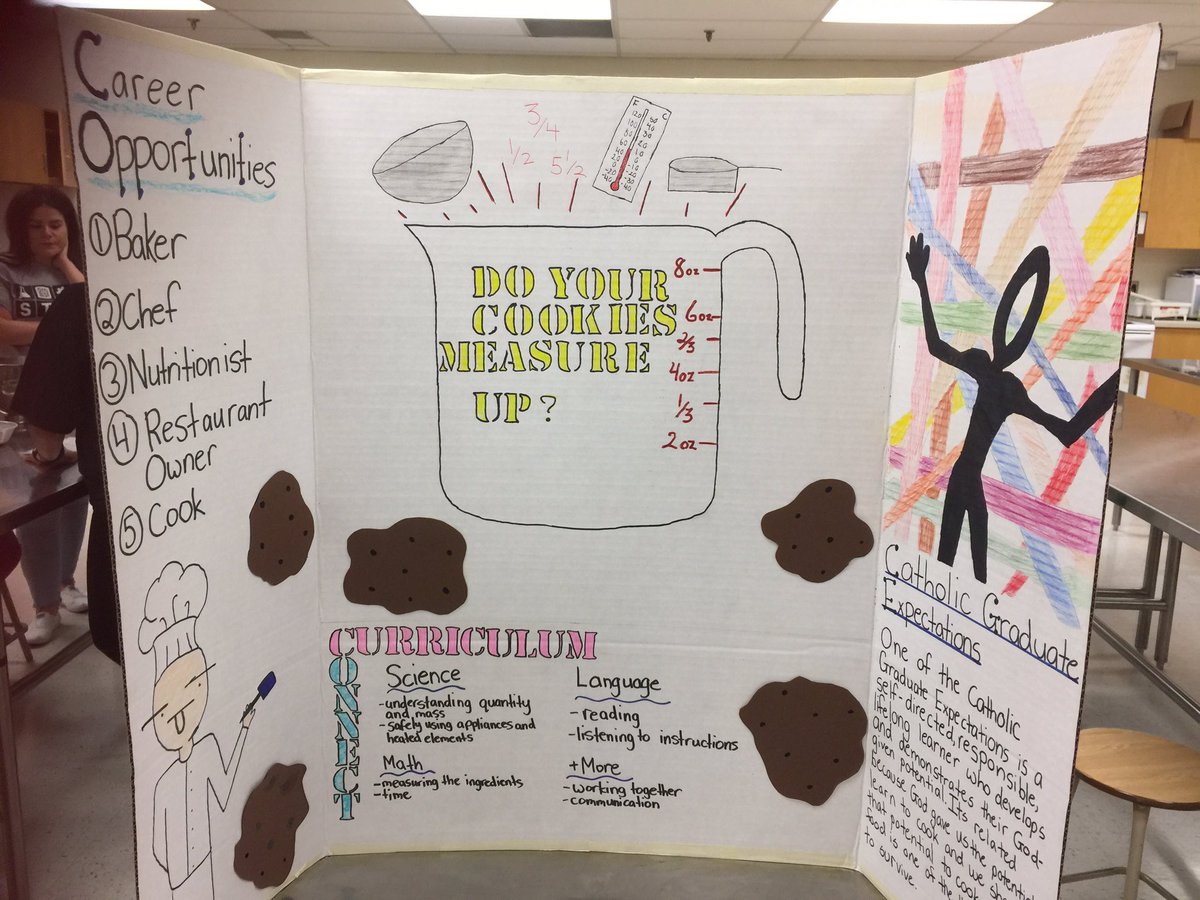 Career
Opportunities
① Baker
② Chef
③ Nutritionist
④ Restaurant
Owner
⑤ Cook
3/4
1/2
5 1/2
F
C
120
100
80
60
40
20
0
-20
-40
50
40
30
20
10
0
-10
-20
-30
-40
DO YOUR
COOKIES
MEASURE
UP?
8oz
6oz
2/3
4oz
1/3
2oz
CURRICULUM
CONNECT
Science
-understanding quantity
and mass
-safely using appliances and
heated elements
Math
-measuring the ingredients
-time
Language
-reading
-listening to instructions
+More
-working together
-communication
Catholic Graduate
Expectations
One of the Catholic
Graduate Expectations is a
self-directed, responsible,
lifelong learner who develops
and demonstrates their God-
given potential. Its related
because God gave us the potential
learn to cook and we
that potential to cook
food is one of the
to survive.